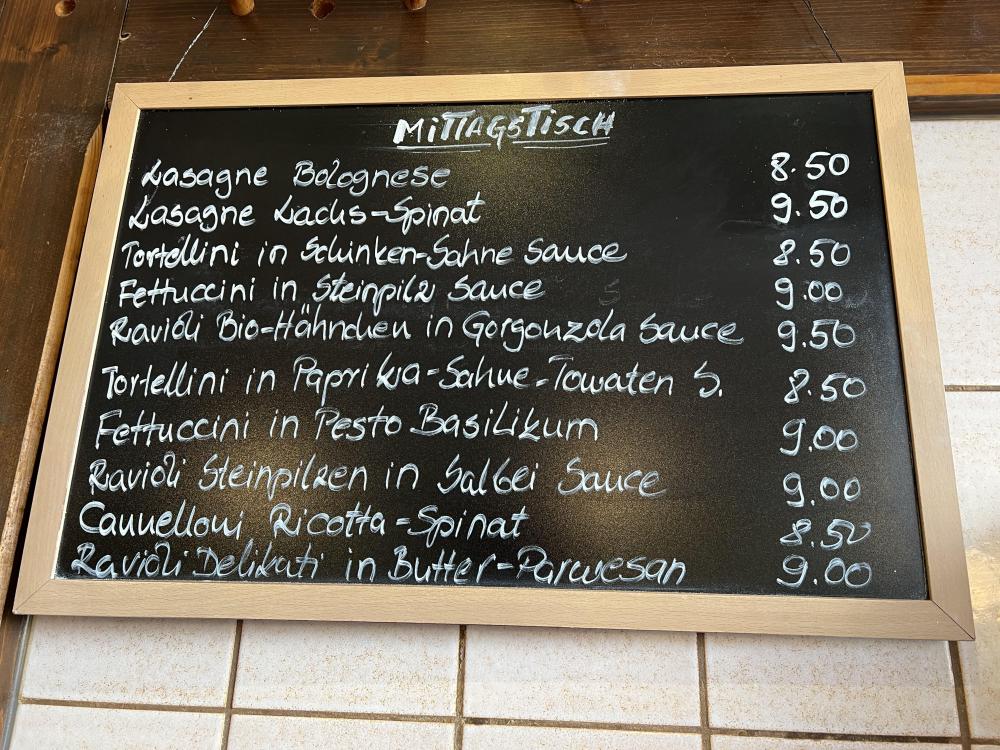 MiTTAGSTiSCH
Lasagne Bolognese 8.50
Lasagne Lachs-Spinat 9.50
Tortellini in Schinken-Sahne Sauce 8.50
Fettuccini in Steinpilz Sauce 9.00
Ravioli Bio-Hähnchen in Gorgonzola Sauce 9.50
Tortellini in Paprika-Sahne-Tomaten S. 8.50
Fettuccini in Pesto Basilikum 9.00
Ravioli Steinpilzen in Salbei Sauce 9.00
Cannelloni Ricotta-Spinat 8.50
Ravioli Delikati in Butter-Parmesan 9.00